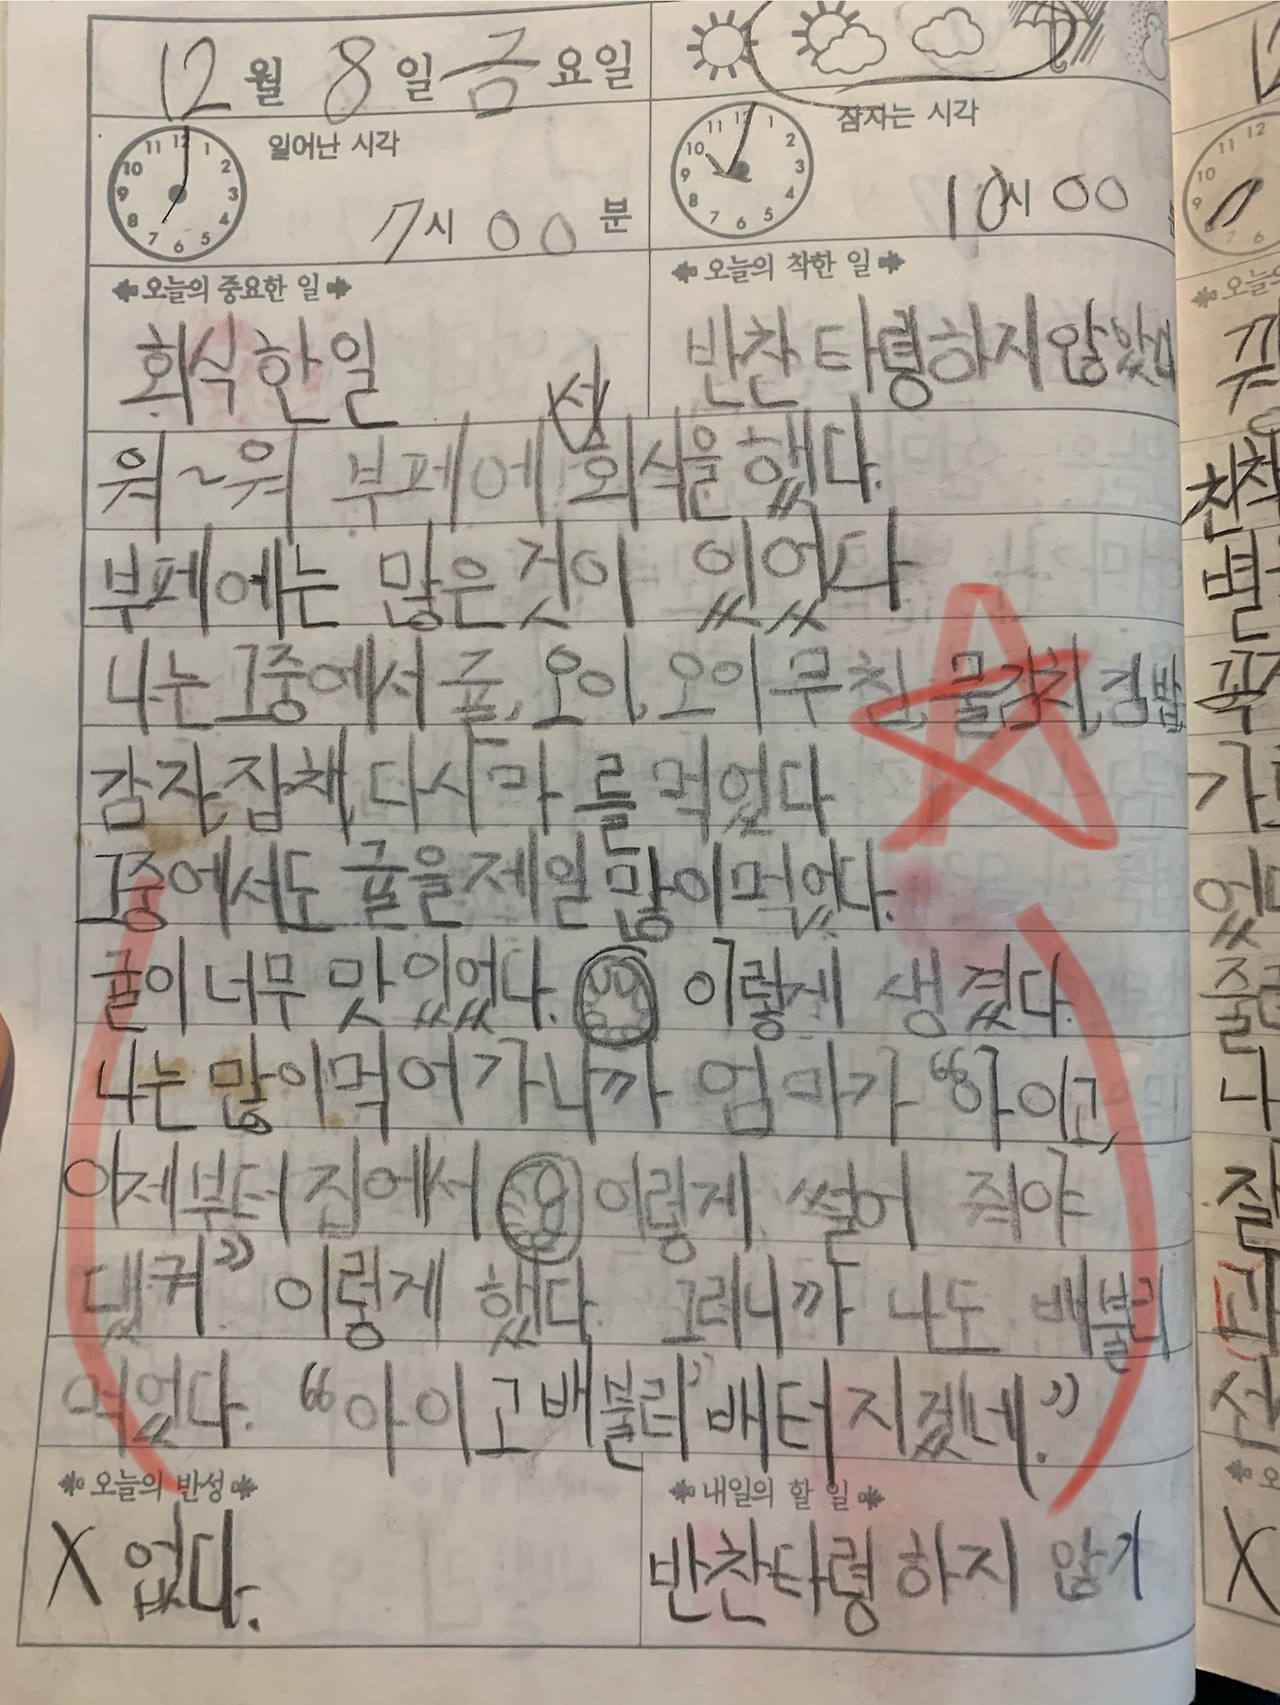 12월 8일 금요일
일어난 시각
7시 00분
잠자는 시각
10시 00
오늘의 중요한 일
회식한일
오늘의 착한 일
반찬타령하지않았다
섯
워~워 부페에 회식을 했다.
부페에는 많은 것이 있었다
나는 그중에서 귤, 오이, 오이무침, 물김치, 김밥
감자, 잡채, 다시마를 먹었다
그중에서도 귤을 제일 많이먹었다.
귤이 너무 맛있었다. 이렇게 생겼다.
나는 많이 먹어가니까 엄마가 "아이고,
이제부터 집에서 이렇게 썰어 줘야
댔켜" 이렇게 했다. 그러니까 나도 배불리
먹었다. "아이고 배불러" 배터지겠네."
오늘의 반성
X 없다.
내일의 할 일
반찬타령 하지 않기